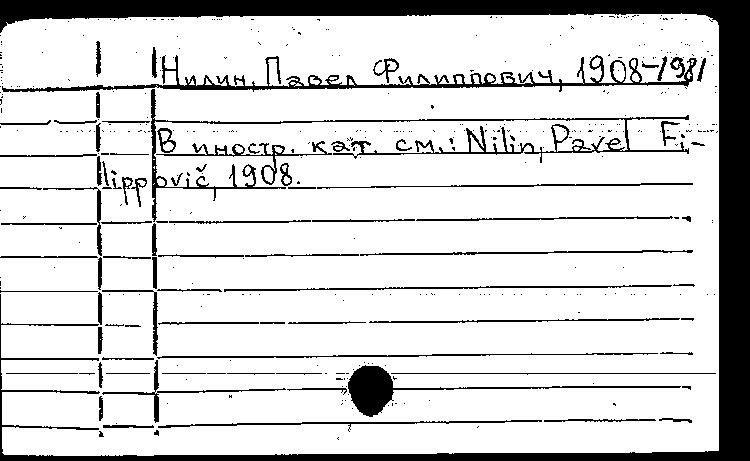 Нилин, Павел Филиппович, 1908-1981
В иностр. кат. см.: Nilin, Pavel Fi-
lippovič, 1908.